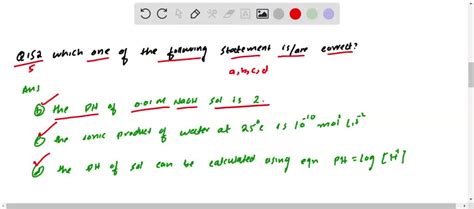 Q152 which one of the following statement is/are correct?
5
a,b,c,d
Ans
the PH of 0.01 M NaOH sol is 2.
the ionic product of water at 25°C is 10⁻¹⁰ mol² L⁻²
(d) the PH of sol can be calculated using eqn PH = log [H⁺]